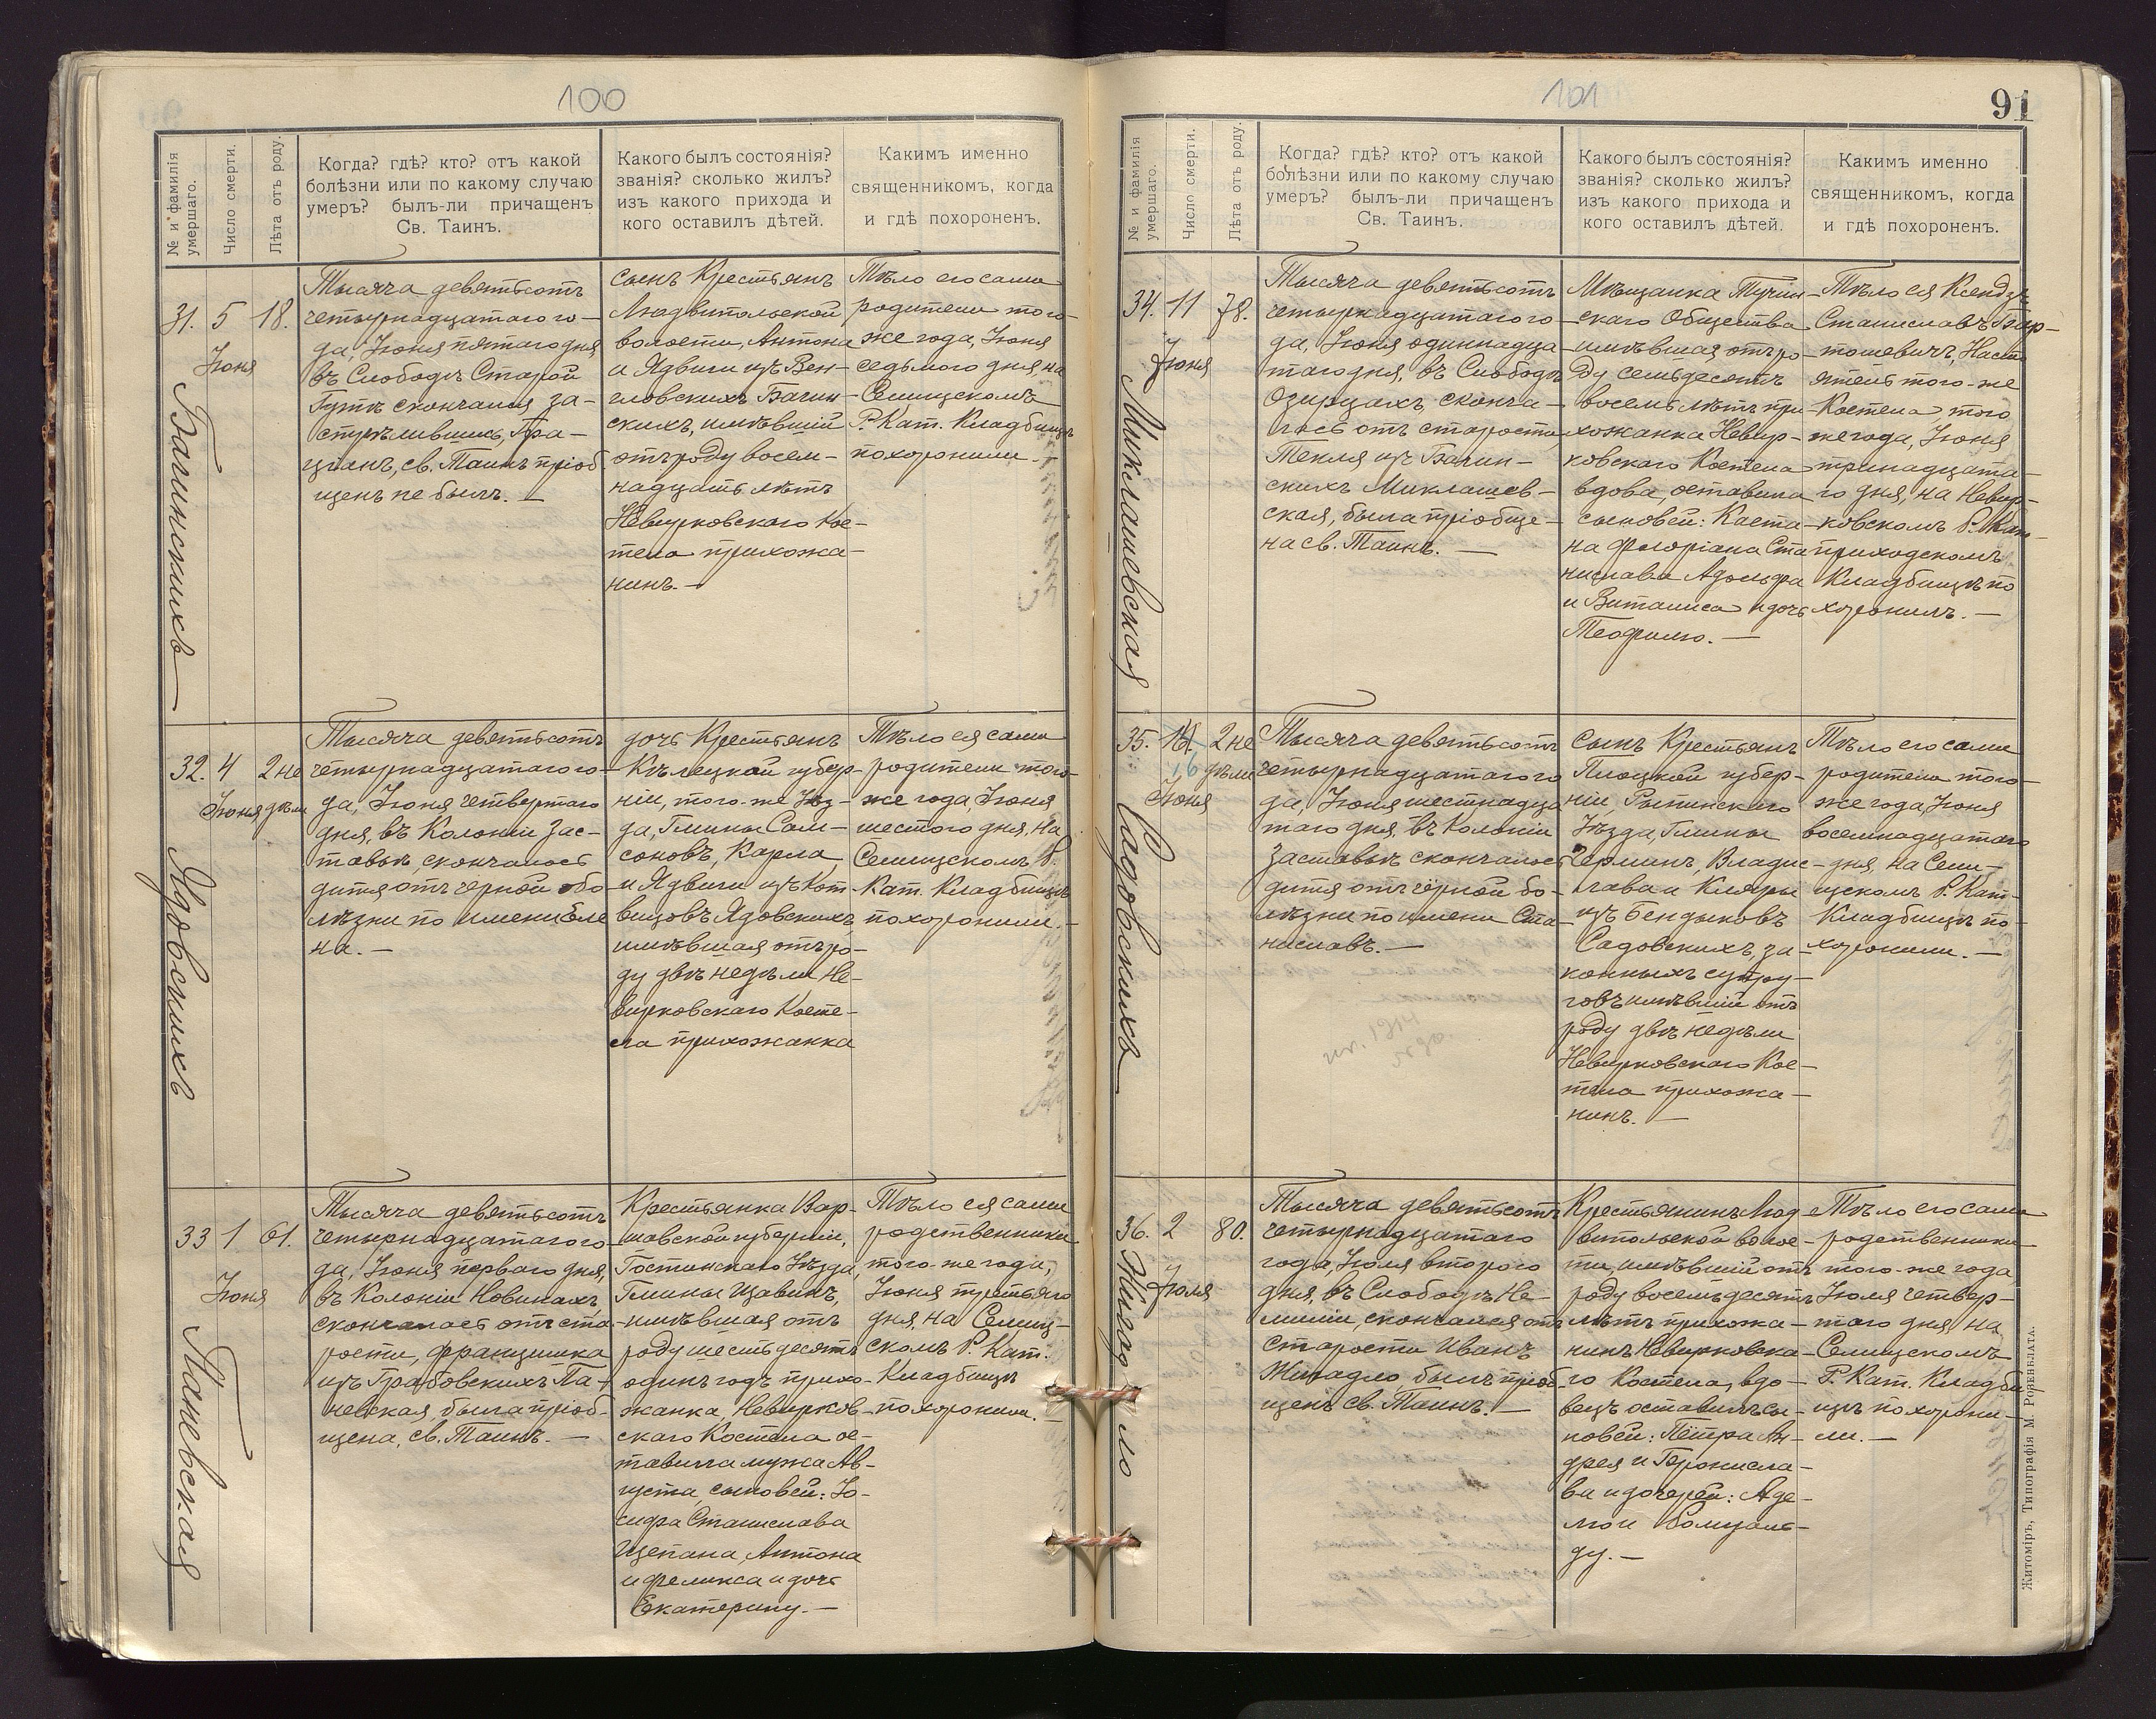 100
№ и фамилія умершаго.
Число смерти.
Лѣта отъ роду.
Когда? гдѣ? кто? отъ какой
болѣзни или по какому случаю
умеръ? былъ-ли причащенъ
Св. Таинъ.
Какого былъ состоянія?
званія? сколько жилъ?
изъ какого прихода и
кого оставилъ дѣтей.
Какимъ именно
священникомъ, когда
и гдѣ похороненъ.
31.
Багинскихъ
5
Іюня
18.
Тысяча девятьсотъ
четырнадцатаго го-
да, Іюня пятаго дня
въ Слободѣ Старой
Гутѣ скончался за-
стрѣлившись, Гра-
ціанъ, св. Таинъ пріоб
щенъ не былъ. —
сынъ Крестьянъ
Людвипольской
волости, Антона
и Ядвиги изъ Вен-
гловскихъ Багин-
скихъ, имѣвшій
отъ роду восем-
надцать лѣтъ
Невирковского Кос-
тела прихожа-
нинъ. —
Тѣло его сами
родители того-
же года, Іюня
седьмого дня на
Селищскомъ
Р. Кат. Кладбищѣ
похоронили —
32.
Ядовскихъ
4
Іюня
2 не
дѣли
Тысяча девятьсотъ
четырнадцатаго го-
да, Іюня четвертаго
дня, въ Колоніи Зас-
тавьѣ, скончалось
дитя отъ черной обо
лѣзни по имени Еле
на. —
дочь Крестьянъ
Кѣлецкой губер-
ніи, того-же Уѣз-
да, Гмины Сам-
соновъ, Карла
и Ядвиги изъ Кот
вицовъ Ядовскихъ
имѣвшая отъ ро-
ду двѣ недѣли Не-
вирковскаго Косте-
ла прихожанка
Тѣло ея сами
родители того-
же года Іюня
шестого дня, на
Селищскомъ Р.
Кат. Кладбищѣ
похоронили. —
33
Паневская
1
Іюня
61.
Тысяча девятьсотъ
четырнадцатаго го-
да, Іюня перваго дня,
въ Колоніи Новинахъ,
скончалась отъ ста
рости, Францишка
изъ Грабовскихъ Па-
невская, была пріоб-
щена, св. Таинъ. —
Крестьянка Вар-
шавской губерніи,
Гостинскаго Уѣзда,
Гмины Щавинъ,
имѣвшая отъ
роду шестьдесятъ
одинъ годъ прихо-
жанка, Невирков-
скаго Костела ос-
тавила мужа Ав-
густа, сыновей: Іо-
сифа Станислава
Щепана, Антона
и Феликса и дочь
Екатерину. —
Тѣло ея сами
родственники
того-же года,
Іюня третьяго
дня, на Селищ-
скомъ Р. Кат.
Кладбищѣ
похоронили. —
101
91
№ и фамилія умершаго.
Число смерти.
Лѣта отъ роду.
Когда? гдѣ? кто? отъ какой
болѣзни или по какому случаю
умеръ? былъ-ли причащенъ
Св. Таинъ.
Какого былъ состоянія?
званія? сколько жилъ?
изъ какого прихода и
кого оставилъ дѣтей.
Какимъ именно
священникомъ, когда
и гдѣ похороненъ.
34.
Миклашевская
11
Іюня
78.
Тысяча девятьсотъ
четырнадцатаго го
да, Іюня одиннадца
таго дня, въ Слободѣ
Озирцахъ, сконча-
лась отъ старости
Текля изъ Багин-
скихъ Миклашев-
ская, была пріобще-
на св. Таинъ. —
Мѣщанка Тучин-
скаго Общества
имѣвшая отъ ро-
ду семьдесятъ
восемь лѣтъ при-
хожанка Невир-
ковского Костела
вдова, оставила
сыновей: Каета-
на Флоріана Ста
нислава Адольфа
и Виталиса и дочь
Теофилю. —
Тѣло ея Ксендзъ
Станиславъ Бар-
тошевичъ, Насто
ятель того-же
Костела того
же года, Іюня
тринадцата-
го дня, на Невир-
ковскомъ Р. Кат.
приходскомъ
Кладбищѣ по
хоронилъ. —
35.
Садовскихъ
16
Іюня
2 не
дѣли
Тысяча девятьсотъ
четырнадцатаго го
да, Іюня шестнадца
таго дня, въ Колоніи
Заставьѣ скончалось
дитя отъ черной бо-
лѣзни по имени Ста-
ниславъ. —
сынъ Крестьянъ
Плоцкой губер-
ніи, Рыпинского
Уѣзда, Гмины
Чермин, Владис-
лава и Кляры
изъ Бендыковъ
Садовскихъ, за-
конныхъ супру-
говъ имѣвшій отъ
роду двѣ недѣли
Невирковскаго Кос-
тела прихожа-
нинъ. —
Тѣло его сами
родители того-
же года, Іюня
восемнадцатаго
дня, на Сели-
щскомъ Р. Кат.
Кладбищѣ по-
хоронили. —
36.
Жигадло
2
Іюля
80.
Тысяча девятьсотъ
четырнадцатаго
года, Іюля второго
дня, въ Слободѣ Не-
миліи, скончался отъ
старости Иванъ
Жигадло былъ пріоб-
щенъ св. Таинъ. —
Крестьянинъ Люд
випольской волос-
ти, имѣвшій отъ
роду восемьдесятъ
лѣтъ прихожа-
нинъ Невирковска-
го Костела, вдо-
вецъ оставилъ сы-
новей: Петра Ан-
дрея и Бронисла-
ва и дочерей: Аде-
лю и
ду. —
Тѣло его сами
родственники
того-же года
Іюля четвер-
таго дня, на
Селищскомъ
Р. Кат. Кладби
щѣ похорони-
ли. —
Житоміръ, Типографія М. Роненблата.